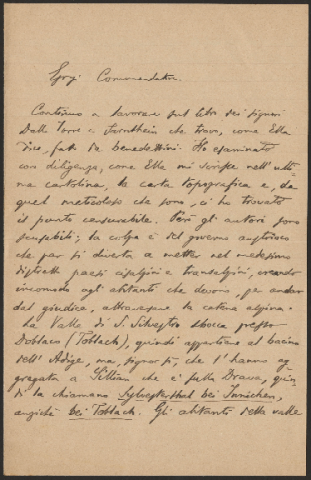 Egregi Commendator.
Continuo a lavorare sul libro dei signori
Dalla Torre e Sarnthein che trovo, come Ella
dice, fatto da benedettini. Ho esaminato
con diligenza, come Ella mi scrisse nell'ulti-
ma cartolina, la carta topografica e, da
quel meticoloso che sono, ci ho trovato
il punto censurabile. Però gli autori sono
scusabili; la colpa è del governo austriaco
che par si diverta a metter nel medesimo
distretto paesi cisalpini e transalpini, creando
incomodo agli abitanti che devono, per andar
dal giudice, attraversare la catena alpina.
La Valle di S. Silvestro sbocca presso
Doblaco (Toblach), quindi appartiene al bacino
dell'Adige, ma, signor sì, che l'hanno ag-
gregata a Sillian che è sulla Drava, quin-
di la chiamano Sylvesterthal bei Innichen,
anzichè bei Toblach. Gli abitanti della valle